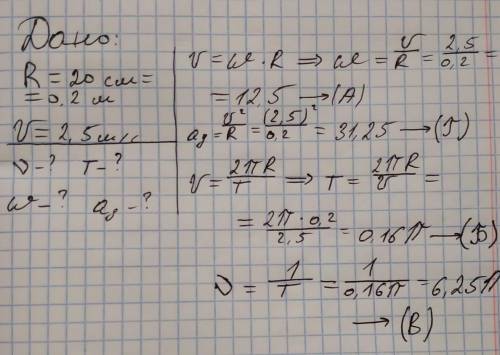 Дано:
R = 20 см =
= 0,2 м
V = 2,5 м/с
ν - ? T - ?
ω - ? aд - ?
V = ω · R ⇒ ω = V/R = 2,5/0,2 =
= 12,5 → (А)
aд = V²/R = (2,5)²/0,2 = 31,25 → (Г)
V = 2πR/T ⇒ T = 2πR/V =
= 2π · 0,2/2,5 = 0,16π → (Б)
ν = 1/T = 1/0,16π = 6,25π
→ (В)